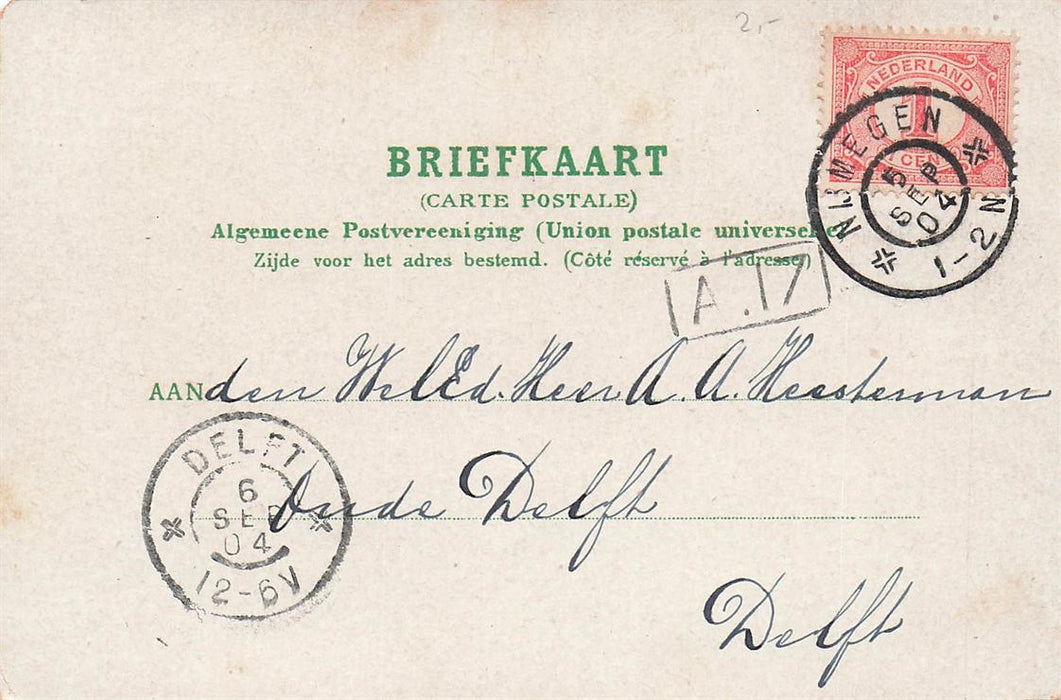 2,-
NEDERLAND
1
CENT
NIJMEGEN
5 SEP 04
1-2N
BRIEFKAART
(CARTE POSTALE)
Algemeene Postvereeniging (Union postale universelle)
Zijde voor het adres bestemd. (Côté réservé à l'adresse)
A.17
AAN den WelEd. Heer A. A. Heesterman
Oude Delft
Delft
DELFT
6
SEP
04
12-6V